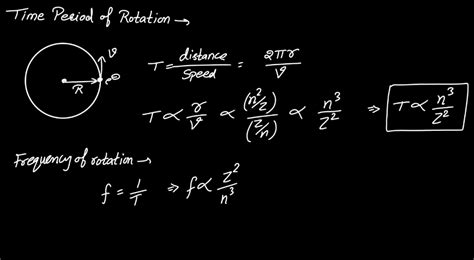 Time Period of Rotation →
v
e⊖
R
T = distance/Speed = 2πr/v
T ∝ r/v ∝ (n²/Z)/(Z/n) ∝ n³/Z² ⇒ T ∝ n³/Z²
Frequency of rotation →
f = 1/T ⇒ f ∝ Z²/n³